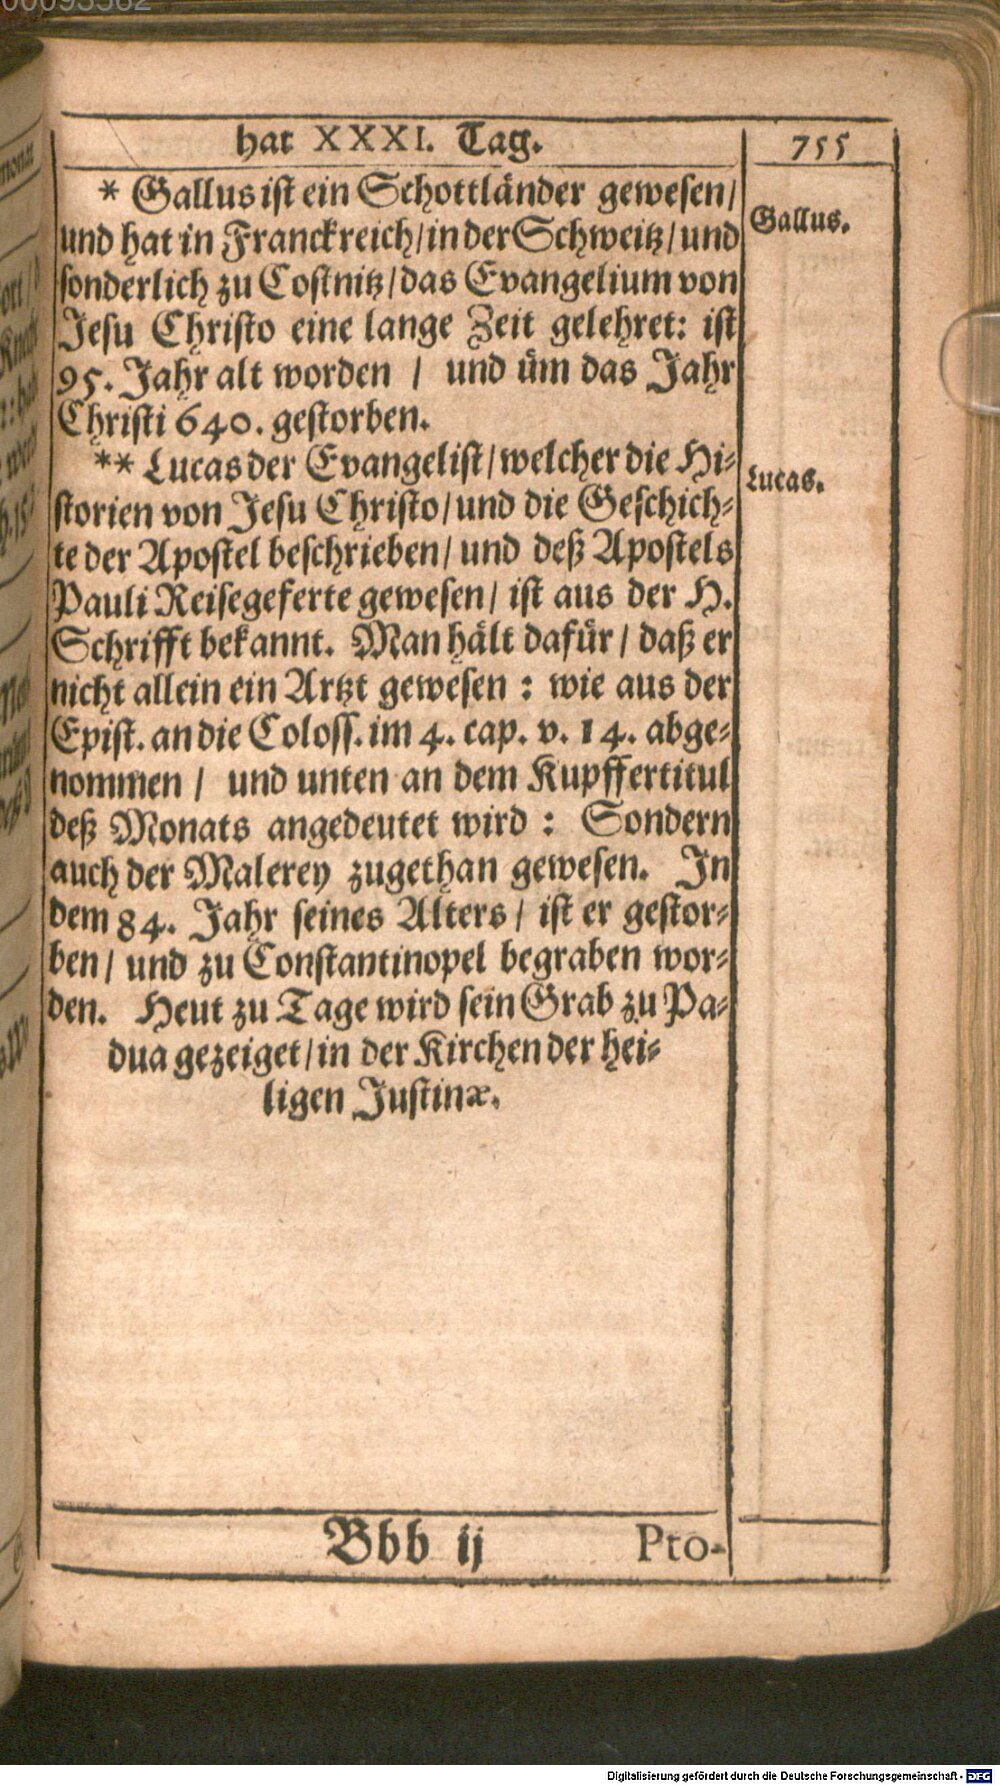 hat XXXI. Tag.
755
* Gallus ist ein Schottländer gewesen/
Gallus.
und hat in Franckreich/in der Schweitz/und
sonderlich zu Costnitz/das Evangelium von
Jesu Christo eine lange Zeit gelehret: ist
95. Jahr alt worden / und üm das Jahr
Christi 640. gestorben.
** Lucas der Evangelist/welcher die Hi-
Lucas.
storien von Jesu Christo/und die Geschich-
te der Apostel beschrieben/und deß Apostels
Pauli Reisegeferte gewesen/ ist aus der H.
Schrifft bekannt. Man hält dafür/ daß er
nicht allein ein Artzt gewesen : wie aus der
Epist. an die Coloss. im 4. cap. v. 14. abge-
nommen / und unten an dem Kupffertitul
deß Monats angedeutet wird : Sondern
auch der Malerey zugethan gewesen. In
dem 84. Jahr seines Alters/ ist er gestor-
ben/ und zu Constantinopel begraben wor-
den. Heut zu Tage wird sein Grab zu Pa-
dua gezeiget/in der Kirchen der hei-
ligen Justinæ.
Bbb ij
Pto-
Digitalisierung gefördert durch die Deutsche Forschungsgemeinschaft - DFG